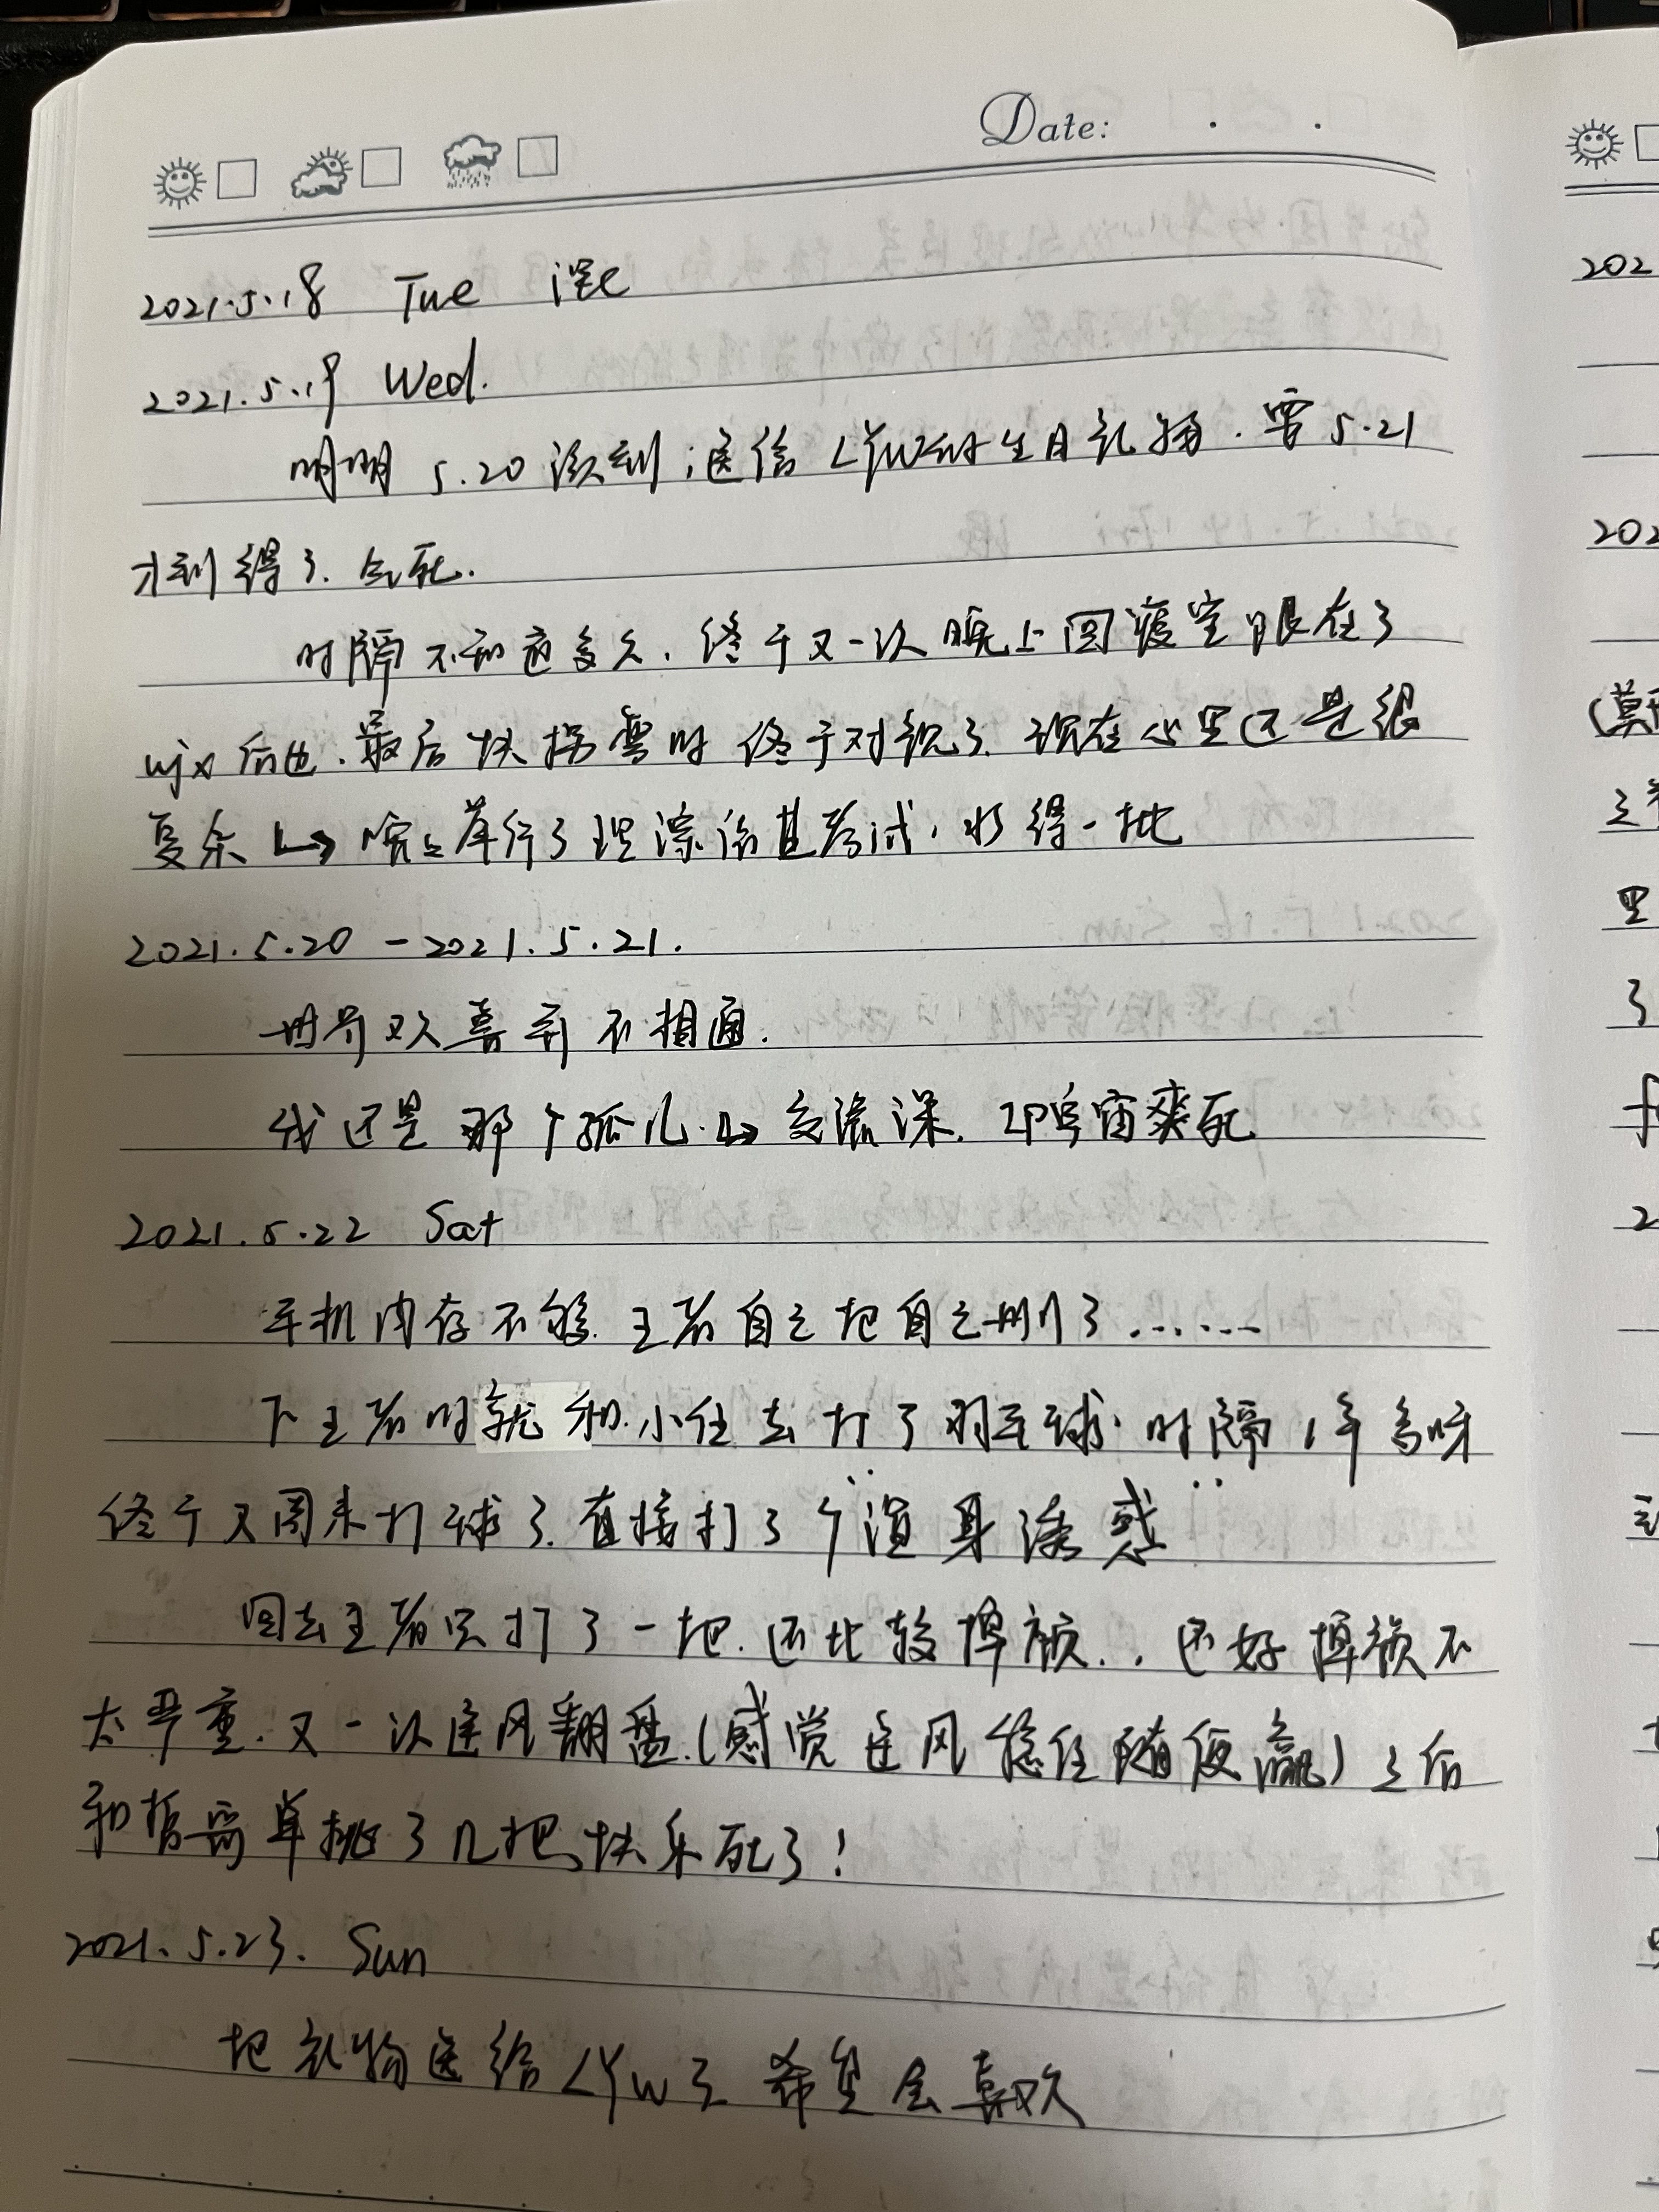 Date:
2021.5.18 Tue 混
2021.5.19 Wed.
明明 5.20 该到送给 LYW的生日礼物.要5.21
才到得了.气死.
时隔不知道多久.终于又一次晚上回寝室跟在了
wjx后面.最后快拐弯时终于对视了.现在心里还是很
复杂 ↳ 晚上举行了理综诊甚考试,水得一批
2021.5.20 — 2021.5.21.
世界欢喜并不相通.
我还是那个孤儿.↳ 交流课.
2021.5.22 Sat
手机内存不够.王者自己把自己删了......
下王者时就和小任去打了羽毛球.时隔1年多呀
终于又周末打球了.直接打了个湿身诱惑
回去王者只打了一把.还比较掉帧..还好掉帧不
太严重.又一次逆风翻盘.(感觉逆风稳住随便赢)之后
和哲哥单挑了几把,快乐死了!
2021.5.23. Sun
把礼物送给LYW了 希望会喜欢
202
202
(莫
之
里
了
2